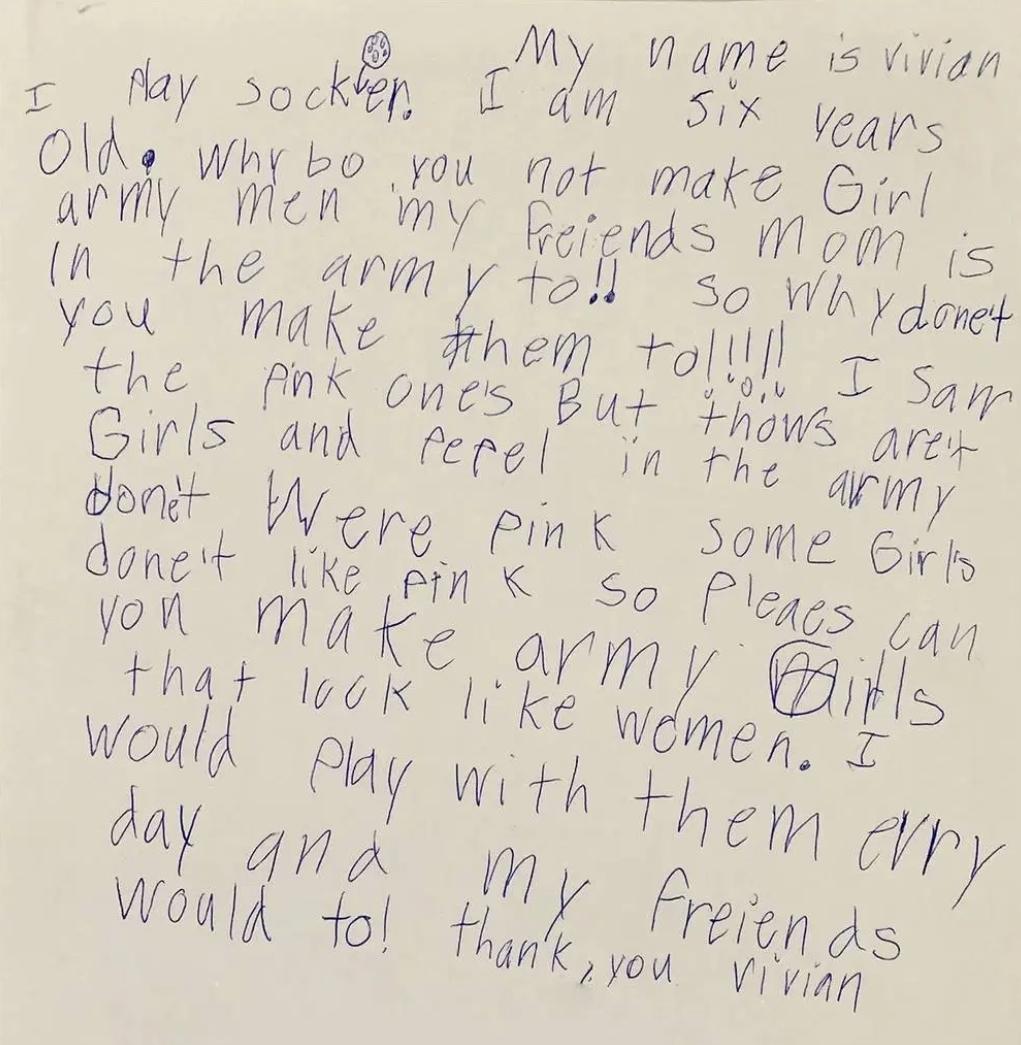 My name is vivian
I Play socker. I am six years
Old. Why bo you not make Girl
army men my freiends mom is
in the army to!! so why done't
you make them to!!!!! I Saw
the pink ones But thows are't
Girls and pepel in the army
done't Were pink some Girls
done't like pink so pleaes can
you make army Girls
that look like women. I
would play with them evry
day and my freiends
would to! thank, you vivian